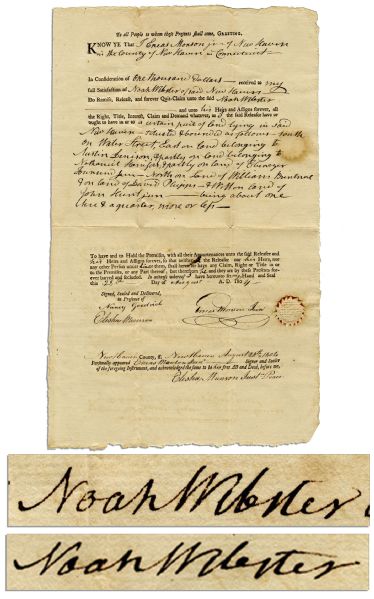 To all People to whom these Presents shall come, GREETING.
KNOW YE That I Eneas Monson jr of New Haven
in the County of New Haven in Connecticut
In Consideration of One thousand Dollars received to my
full Satisfaction of Noah Webster of said New Haven
Do Remise, Release, and forever Quit-Claim unto the said Noah Webster
and unto his Heirs and Assigns forever, all
the Right, Title, Interest, Claim and Demand whatever, as I the said Releasor have or
ought to have in or to a certain piece of land lying in said
New Haven situated & bounded as follows south
on Water Street, East on land belonging to
Austin Denison & partly on land belonging to
Nathaniel & partly on land of Ebenezer
Townsend jun North on land of William
& on land of David Phipps & W on land of
John Hunt jun being about one
Acre & a quarter, more or less
To have and to Hold the Premises, with all their Appurtenances unto the said Releasee and
his Heirs and Assigns forever, so that neither I the Releasor nor his Heirs, nor
any other Person under them, shall have any Claim, Right or Title in or
to the Premises, or any Part thereof; but therefrom I and they are by these Presents for-
ever barred and secluded. In witness whereof I have hereunto set my Hand and Seal
this 28th Day of August A. D. 1804
Signed, Sealed and Delivered,
in Presence of
Nancy Goodrich
Elisha Munson
Eneas Monson Jun
New Haven County, ss. New Haven August 28th 1804
Personally appeared Eneas Monson Jun Signer and Sealer
of the foregoing Instrument, and acknowledged the same to be his free Act and Deed, before me,
Elisha Munson Just Peace
Noah Webster
Noah Webster